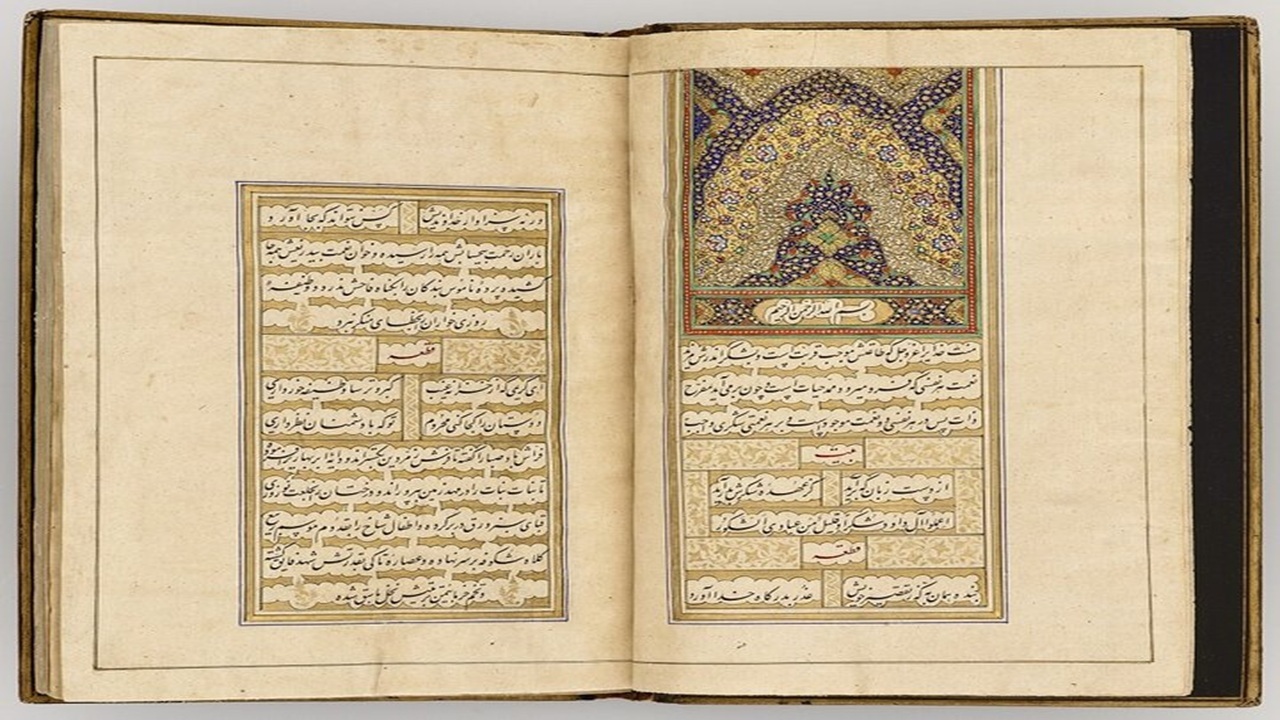 بسم الله الرحمن الرحیم
منت خدایرا عز و جل که طاعتش موجب قربت است و بشکر اندرش مزید
نعمت هر نفسی که فرو میرود ممد حیات است و چون برمی آید مفرح
ذات پس در هر نفسی دو نعمت موجود است و بر هر نعمتی شکری واجب
بیت
از دست و زبان که برآید کز عهده شکرش بدر آید
اعملوا آل داود شکرا و قلیل من عبادی الشکور
قطعه
بنده همان به که ز تقصیر خویش عذر بدرگاه خدا آورد
ورنه سزاوار خداوندیش کس نتواند که بجا آورد
باران رحمت بیحسابش همه را رسیده و خوان نعمت بیدریغش همه جا
کشیده پرده ناموس بندگان را بگناه فاحش ندرد و وظیفه
روزی خواران بخطای منکر نبرد
قطعه
ای کریمی که از خزانه غیب گبر و ترسا وظیفه خور داری
دوستان را کجا کنی محروم تو که با دشمنان نظر داری
فراش باد صبا را گفته تا فرش زمردین بگستراند و دایه ابر بهاری را فرموده
تا بنات نبات را در مهد زمین بپروراند و درختان را بخلعت نوروزی
قبای سبز ورق در بر کرده و اطفال شاخ را بقدوم موسم ربیع
کلاه شکوفه بر سر نهاده و عصاره تاکی بقدرتش شهد فایق گشته
و تخم خرما بیمن تربیتش نخل باسق شده